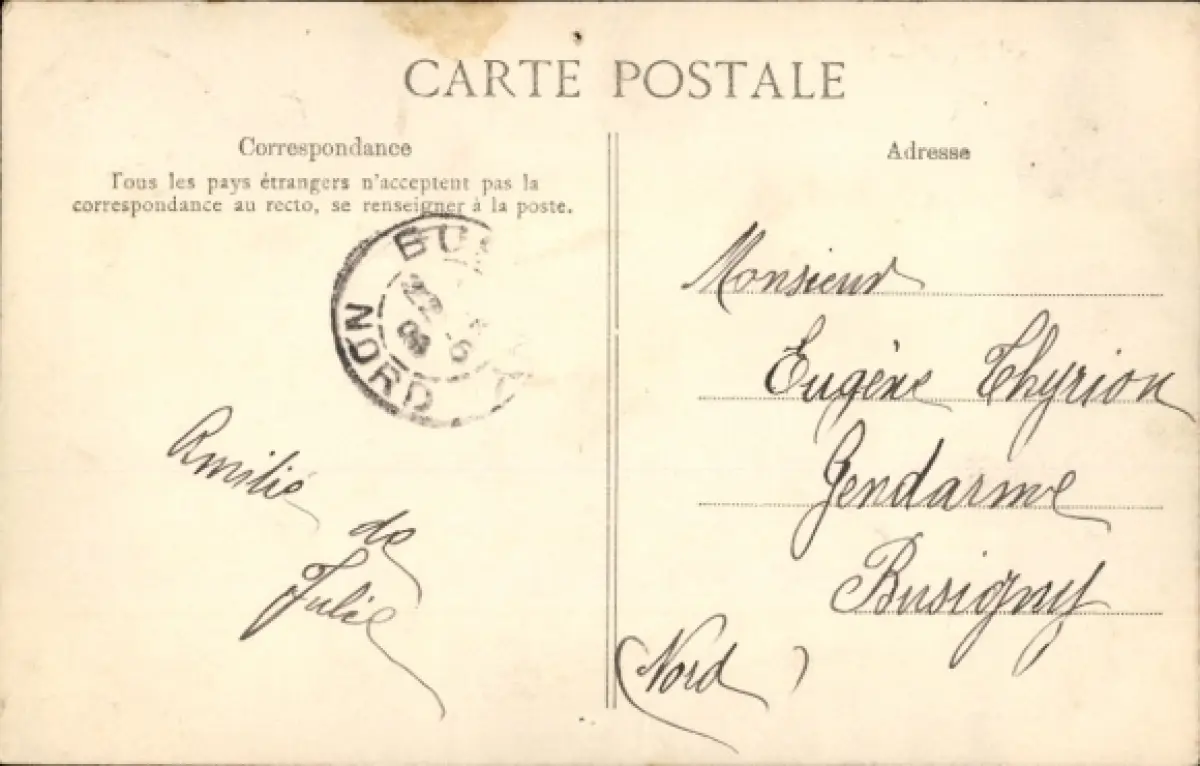 CARTE POSTALE
Correspondance
Tous les pays étrangers n'acceptent pas la
correspondance au recto, se renseigner à la poste.
Adresse
BUS
22 6
NORD
Amitié
de
Julie
Monsieur
Eugène Thyrion
Gendarme
Busigny
(Nord)